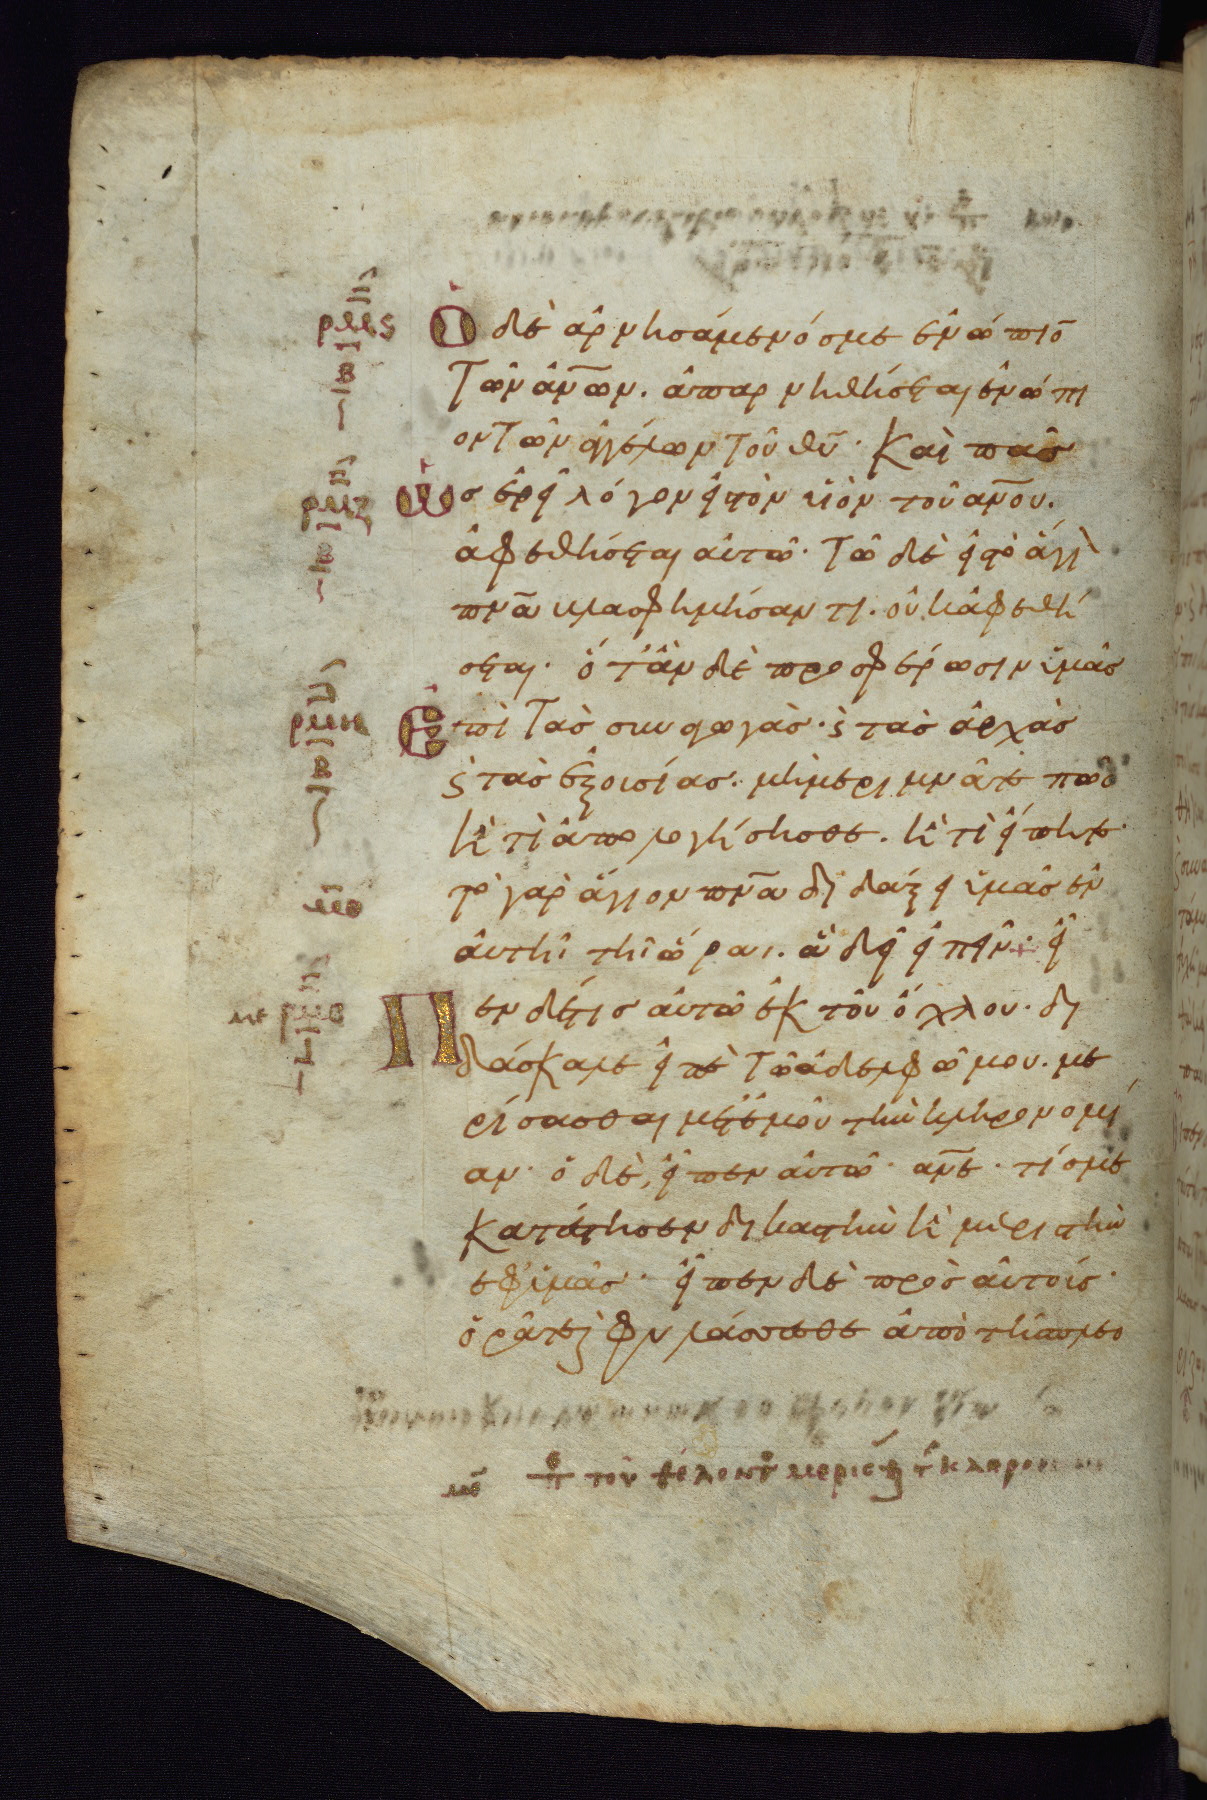 Ὁ δὲ ἀρνησάμενός με ἐνώπιο̅
τῶν ἀν̅ων. ἀπαρνηθήσεται ἐνώπι
ον τῶν ἀγγέλων τοῦ θυ̅· Καὶ πᾶς
ὃς ἐρεῖ λόγον εἰς τὸν υἱὸν τοῦ αν̅ου.
ἀφεθήσεται αὐτῶ· Τῶ δὲ εἰς τὸ ἅγι
πν̅α βλασφημήσαντι. οὐκ ἀφεθή
σεται· ὅταν δὲ προσφέρωσιν ὑμᾶς
ἐπὶ τὰς συναγωγὰς· ϗ τὰς ἀρχὰς
ϗ τὰς ἐξουσίας. μὴ μεριμνᾶτε πῶς
ἢ τί ἀπολογήσησθε. ἢ τί εἴπητε·
τὸ γὰρ ἅγιον πν̅α διδάξει ὑμᾶς ἐν
αὐτῆ τῆ ὥρα ι. ἃ δεῖ εἰπεῖν· εἶ
πεν δέ τις αὐτῶ ἐκ τοῦ ὄχλου· δι
δάσκαλε εἰπὲ τῶ ἀδελφῶ μου. με
ρίσασθαι μετ' ἐμοῦ τὴν κληρονομί
αν· ὁ δὲ, εἶπεν αὐτῶ· αν̅ε· τίς με
κατέστησεν δικαστὴν ἢ μεριστὴν
ἐφ' ὑμᾶς· εἶπεν δὲ πρὸς αὐτούς·
ὁρᾶτε ϗ φυλάσσεσθε ἀπὸ τῆς πλεο
ρμς
β
ρμζ
β
ρμη
β
μθ
ρμθ
ι
μθ π τοῦ θέλοντ μερισ τ κληρονο